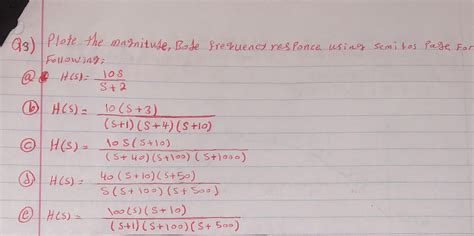 Q3) Plote the magnitude, Bode frequency responce using semilog page for
following:
ⓐ H(s) = 10s / s+2
ⓑ H(s) = 10(s+3) / (s+1)(s+4)(s+10)
ⓒ H(s) = 10s(s+10) / (s+40)(s+100)(s+1000)
ⓓ H(s) = 40(s+10)(s+50) / s(s+100)(s+500)
ⓔ H(s) = 100(s)(s+10) / (s+1)(s+100)(s+500)